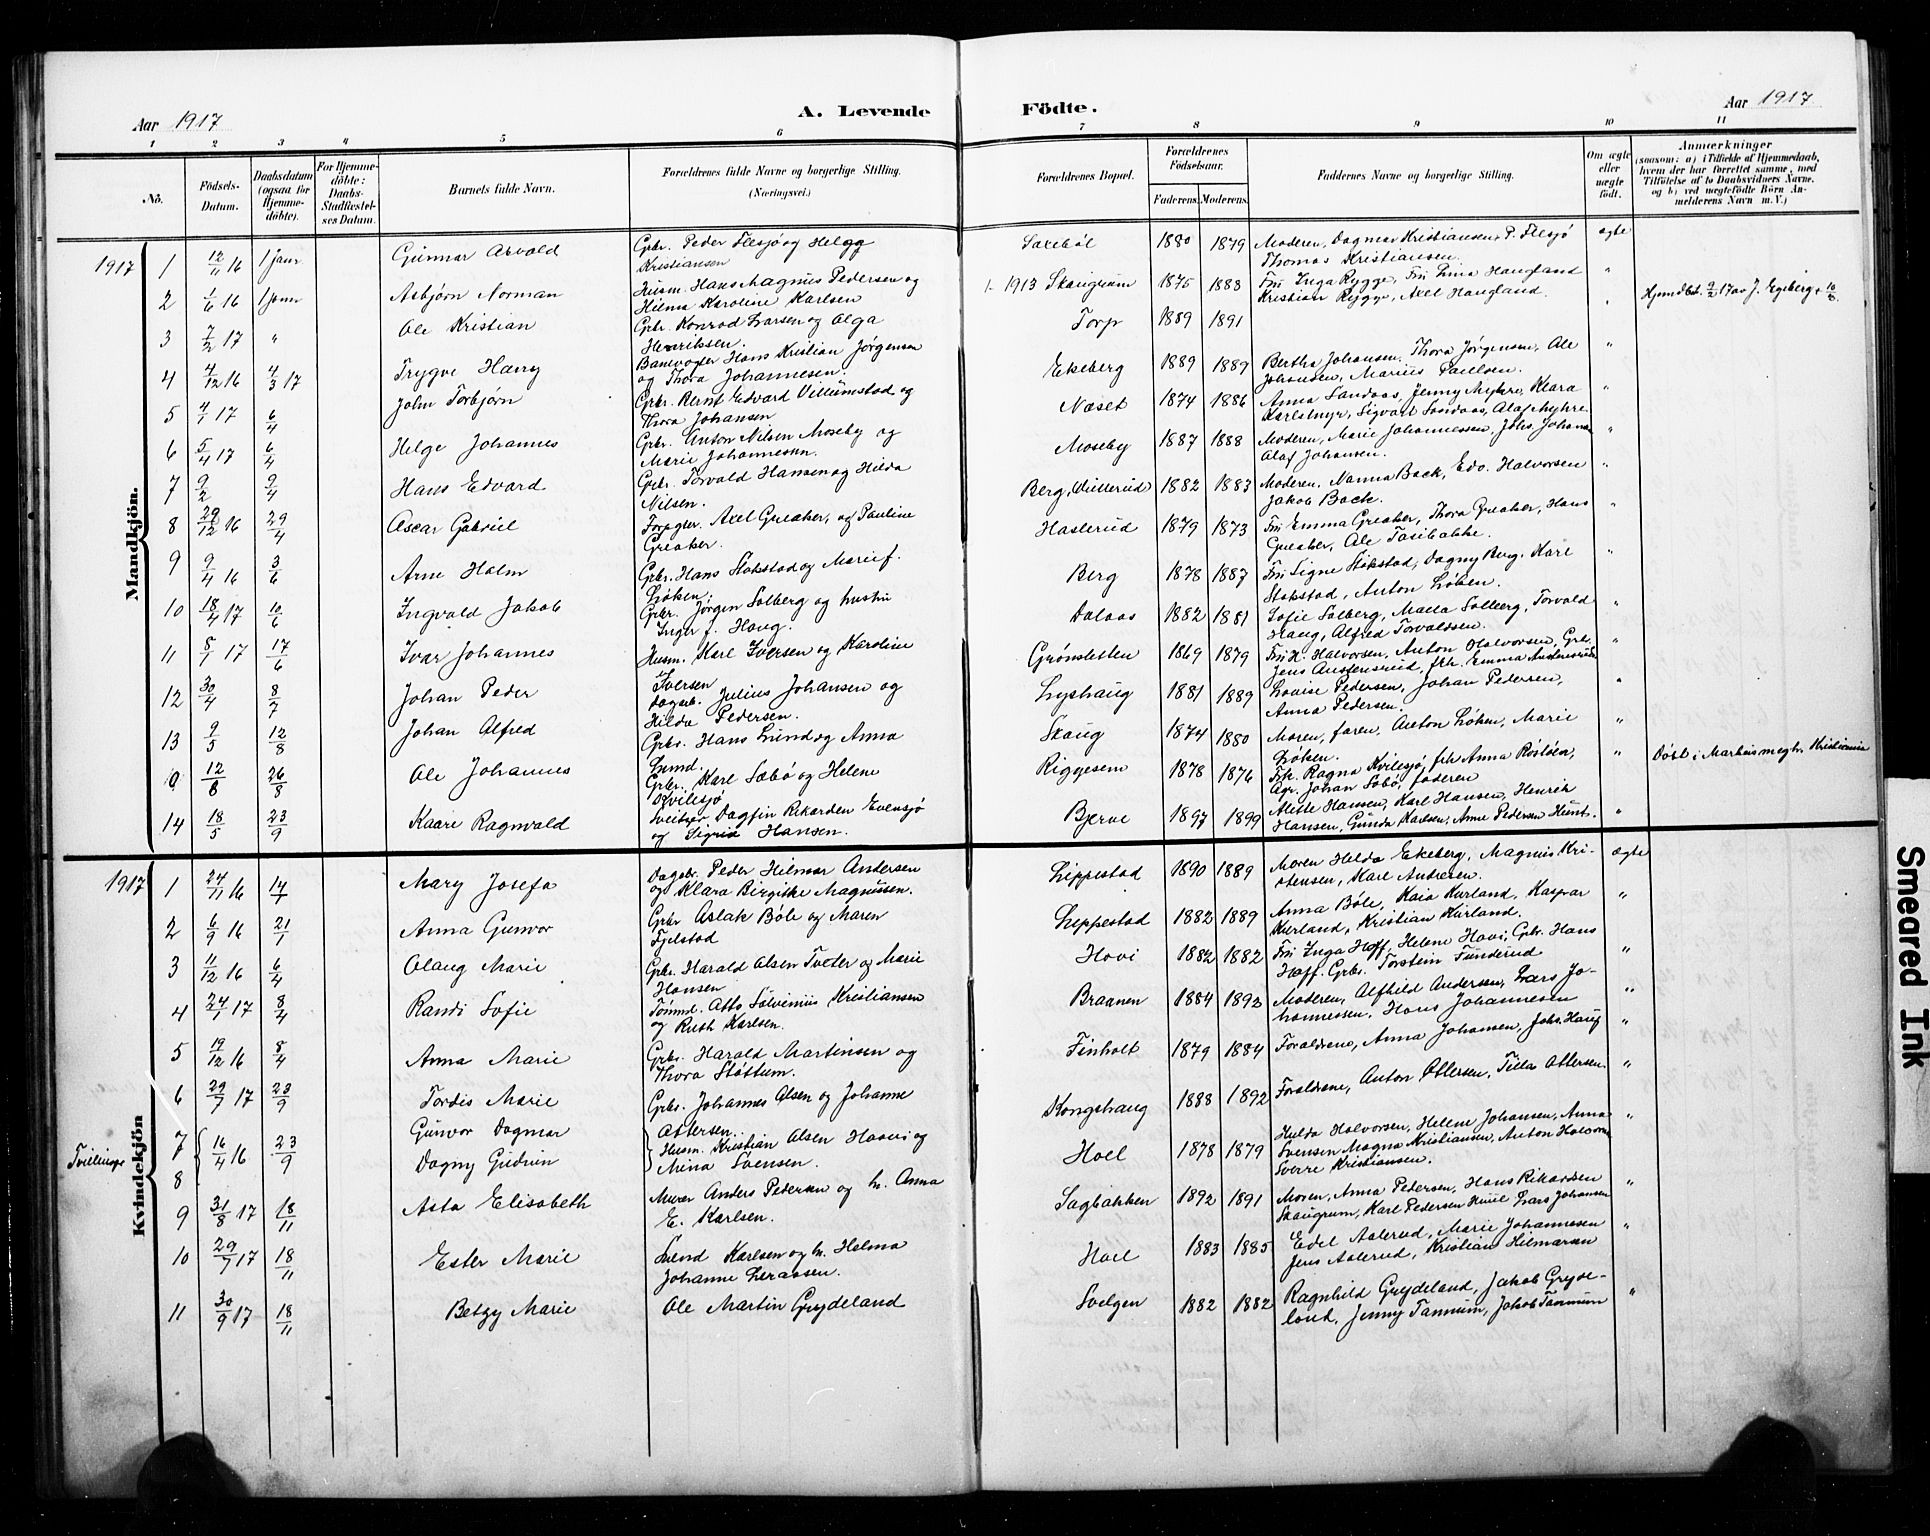 Aar 1917
A. Levende
Födte.
Aar 1917
1 2 3 4 5 6 7 8 9 10 11
No.
Födsels-Datum.
Daabsdatum (ogsaa for Hjemme-döbte).
For Hjemme-döbte: Daabs-Stadfæstel-ses Datum.
Barnets fulde Navn.
Forældrenes fulde Navne og borgerlige Stilling.
(Næringsvei.)
Forældrenes Bopæl.
Forældrenes Födselsaar.
Faderens. Moderens.
Faddernes Navne og borgerlige Stilling.
Om ægte eller uægte födt.
Anmærkninger
(saasom: a) i Tilfælde af Hjemmedaab, hvem der har forrettet samme, med Tilföielse af to Daabsvidners Navne, og b) ved uægtefödte Börn An-melderens Navn m. V.)
Mandkjön.
1917 1 12/11 16 1 janr Gunnar Arvald Grbr. Peder Flesjø og Helga Kristiansen Saxebøl 1880 1879 Moderen, Dagmar Kristiansen, P. Flesjø Thomas Kristiansen. ægte
2 1/6 16 1 janr Asbjørn Norman Husm. Hans Magnus Pedersen og Hilma Karoline Karlsen 1913 Skaugrum 1875 1883 Fru Inga Rygge, Fru Lina Haugland Kristian Rygge, Axel Haugland. "
3 7/2 17 " Ole Kristian Grbr. Konrad Larsen og Olga Henriksen. Torp 1889 1891 " Hjemdbt. 9/2 17 av J. Egeberg + 10/2.
4 4/12 16 4/3 17 Trygve Harry Banevogter Hans Kristian Jørgensen og Thora Johannesen. Ekeberg 1889 1889 Bertha Johansen, Thora Jørgensen, Ole Johansen, Marius Paulsen. "
5 4/1 17 6/4 John Torbjørn Grbr. Bernt Edvard Villumstad og Thora Johansen Næset 1874 1886 Anna Sandaas, Jenny Myhre, Klara Karlsmyr, Sigvart Sandaas, Olaf Myhre. "
6 5/4 17 6/4 Helge Johannes Grbr. Anton Nilsen Moseby og Marie Johannesen. Moseby 1887 1888 Moderen, Marie Johannessen, Johs. Johansen Olaf Johansen. "
7 9/2 9/4 Hans Edvard Grbr. Torvald Hansen og Hilda Nilsen. Berg, 1882 1883 Moderen, Nanna Back, Edv. Halvorsen Jakob Back. "
8 29/12 16 29/4 Oscar Gabriel Forpgter. Axel Greaker, og Pauline Greaker. Haslerud 1879 1873 Fru Emma Greaker, Thora Greaker, Hans Greaker, Ole "
9 9/4 16 3/6 Arne Holm Grbr. Hans Stokstad og Marie f. Løken. Berg 1878 1887 Fru Signe Stokstad, Dagny Berg. Karl Stokstad, Anton Løken. "
10 18/4 17 10/6 Ingvald Jakob Grbr. Jørgen Solberg og hustru Inger f. Haug. Dalaas 1882 1881 Sofie Solberg, Solberg, Torvald Haug, Alfred Torvaldssen. "
11 8/1 17 17/6 Ivar Johannes Husm. Karl Iversen og Karoline Iversen Grønsletten 1869 1879 Fru H. Halvorsen, Anton Halvorsen, Grb. Jens Austensrud, frk. Emma Austensrud "
12 30/4 8/7 Johan Peder Dagarb. Julius Johansen og Hilda Pedersen. Lyshaug 1881 1889 Lovise Pedersen, Johan Pedersen, Anna Pedersen. "
13 9/5 12/8 Johan Alfred Grbr. Hans Lund og Anna Lund. Skaug 1874 1880 Moren, faren, Anton Løken, Marie Løken. "
0 12/8 26/8 Ole Johannes Grbr. Karl Sæbø og Helene Kvilesjø Riggesem 1878 1876 Frk. Ragna Kvilesjø, frk Anna Agr. Johan Sæbø, faderen " Døbt i Markus megh. Kristiania
14 18/5 23/9 Kaare Ragnvald Sveitser Dagfin Rikardsen Evensjø og Sigrid Hansen. Bjerve 1897 1899 Alette Hansen, Karl Hansen, Henrik Hansen, Gunda Karlsen, Anne Pedersen "
Kvindekjön
1917 1 24/11 16 14/1 Mary Josefa Dagabr. Peder Hilmar Andersen og Klara Birgitte Magnussen. Lippestad 1890 1889 Moren Hilda Ekeberg, Magnus Kri-stensen, Karl Andresen. ægte
2 6/9 16 21/1 Anna Gunvor Grbr Aslak Bøle og Maren Fjelstad Leppestad 1882 1889 Anna Bøle, Kaia Kurland, Kaspar Kurland, Kristian Kurland. "
3 11/12 16 6/4 Olaug Marie Grbr. Harald Olsen Tveter og Marie Hansen Hovi 1882 1882 Fru Inga Hoff, Helene Hovi, Grbr. Hans Hoff. Grbr. Torstein Funderud "
4 24/1 17 8/4 Randi Sofie Tømmd. Otto Sølvinius Kristiansen og Ruth Karlsen. Braanen 1884 1892 Moderen, Alfhild Andersen, Lars Jo-hannessen, Hans Johannesen "
5 19/12 16 8/4 Anna Marie Grbr. Harald Martinsen og Thora Støttum. Finholt 1879 1884 Forældrene, Anna Johansen, Johs. "
6 29/7 17 23/9 Tordis Marie Grbr. Johannes Olsen og Johanne Ottersen. Kongshaug 1888 1892 Forældrene, Anton Ottersen, Tilla Ottersen. "
Tvillinger 7 8 16/4 16 23/9 Gunvor Dagmar Dagny Gudrun Husm. Kristian Olsen og Mina Svensen. Hoel 1878 1879 Hulda Halvorsen, Helene Johansen, Anna Svensen Magna Kristiansen, Anton Halvorsen Sverre Kristiansen. "
9 31/8 17 18/11 Asta Elisabeth Murer Anders Pedersen og h. Anna E. Karlsen. Sagbakken 1892 1891 Moren, Anna Pedersen, Hans Rikardsen Skaugrum, Karl Pedersen Lars Johansen "
10 29/7 17 18/11 Ester Marie Svend Karlsen og h. Helma Johanne Hoel 1883 1885 Edel Aalerud, Marie Johannesen Jens Aalerud, Kristian Hilmarsen "
11 30/9 17 18/11 Betzy Marie Ole Martin Grydeland Svelgen 1882 1882 Ragnhild Grydeland, Jakob Gryde-land, Jenny Tannum, Jakob Tannum "
Smeared Ink